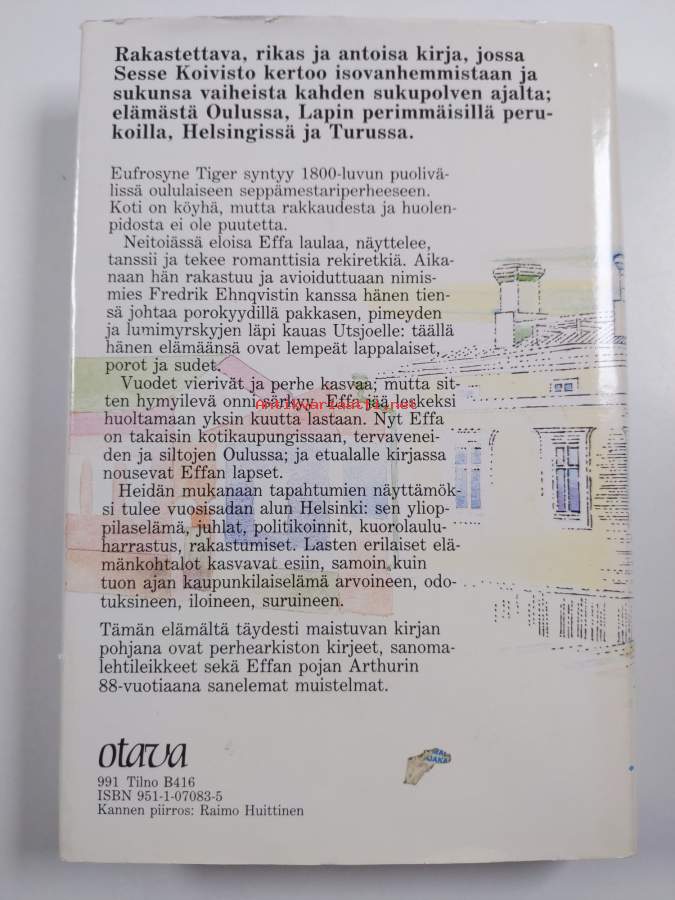 Rakastettava, rikas ja antoisa kirja, jossa
Sesse Koivisto kertoo isovanhemmistaan ja
sukunsa vaiheista kahden sukupolven ajalta;
elämästä Oulussa, Lapin perimmäisillä peru-
koilla, Helsingissä ja Turussa.
Eufrosyne Tiger syntyy 1800-luvun puolivä-
lissä oululaiseen seppämestariperheeseen.
Koti on köyhä, mutta rakkaudesta ja huolen-
pidosta ei ole puutetta.
Neitoiässä eloisa Effa laulaa, näyttelee,
tanssii ja tekee romanttisia rekiretkiä. Aika-
naan hän rakastuu ja avioiduttuaan nimis-
mies Fredrik Ehnqvistin kanssa hänen tien-
sä johtaa porokyydillä pakkasen, pimeyden
ja lumimyrskyjen läpi kauas Utsjoelle: täällä
hänen elämäänsä ovat lempeät lappalaiset,
porot ja sudet.
Vuodet vierivät ja perhe kasvaa; mutta sit-
ten hymyilevä onni särkyy. Effa jää leskeksi
huoltamaan yksin kuutta lastaan. Nyt Effa
on takaisin kotikaupungissaan, tervavenei-
den ja siltojen Oulussa; ja etualalle kirjassa
nousevat Effan lapset.
Heidän mukanaan tapahtumien näyttämök-
si tulee vuosisadan alun Helsinki: sen yliop-
pilaselämä, juhlat, politikoinnit, kuorolaulu-
harrastus, rakastumiset. Lasten erilaiset elä-
mänkohtalot kasvavat esiin, samoin kuin
tuon ajan kaupunkilaiselämä arvoineen, odo-
tuksineen, iloineen, suruineen.
Tämän elämältä täydesti maistuvan kirjan
pohjana ovat perhearkiston kirjeet, sanoma-
lehtileikkeet sekä Effan pojan Arthurin
88-vuotiaana sanelemat muistelmat.
otava
991 Tilno B416
ISBN 951-1-07083-5
Kannen piirros: Raimo Huittinen